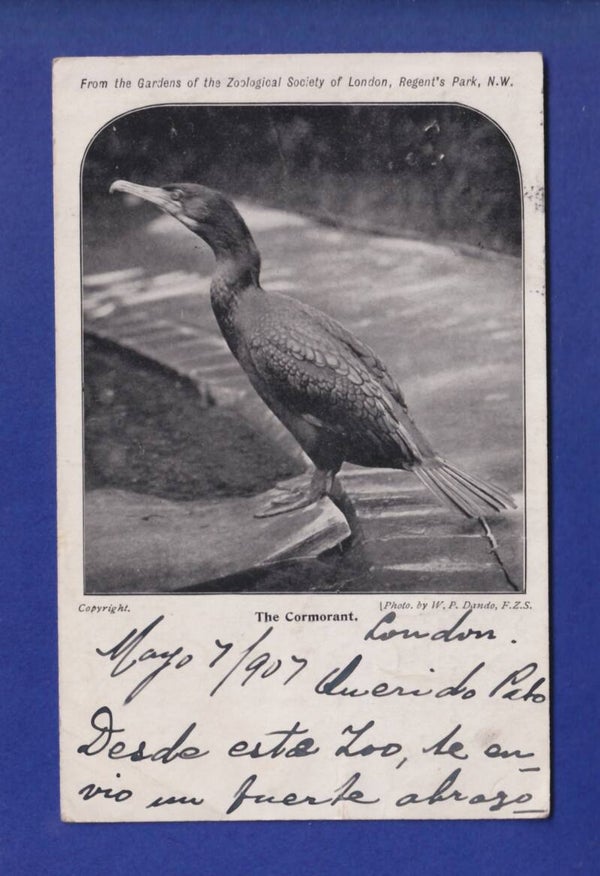 From the Gardens of the Zoological Society of London, Regent's Park, N.W.
Copyright.
[Photo. by W. P. Dando, F.Z.S.
The Cormorant.
London.
Mayo 7/907
Querido Pato
Desde esta Zoo, te en-
vio un fuerte abrazo